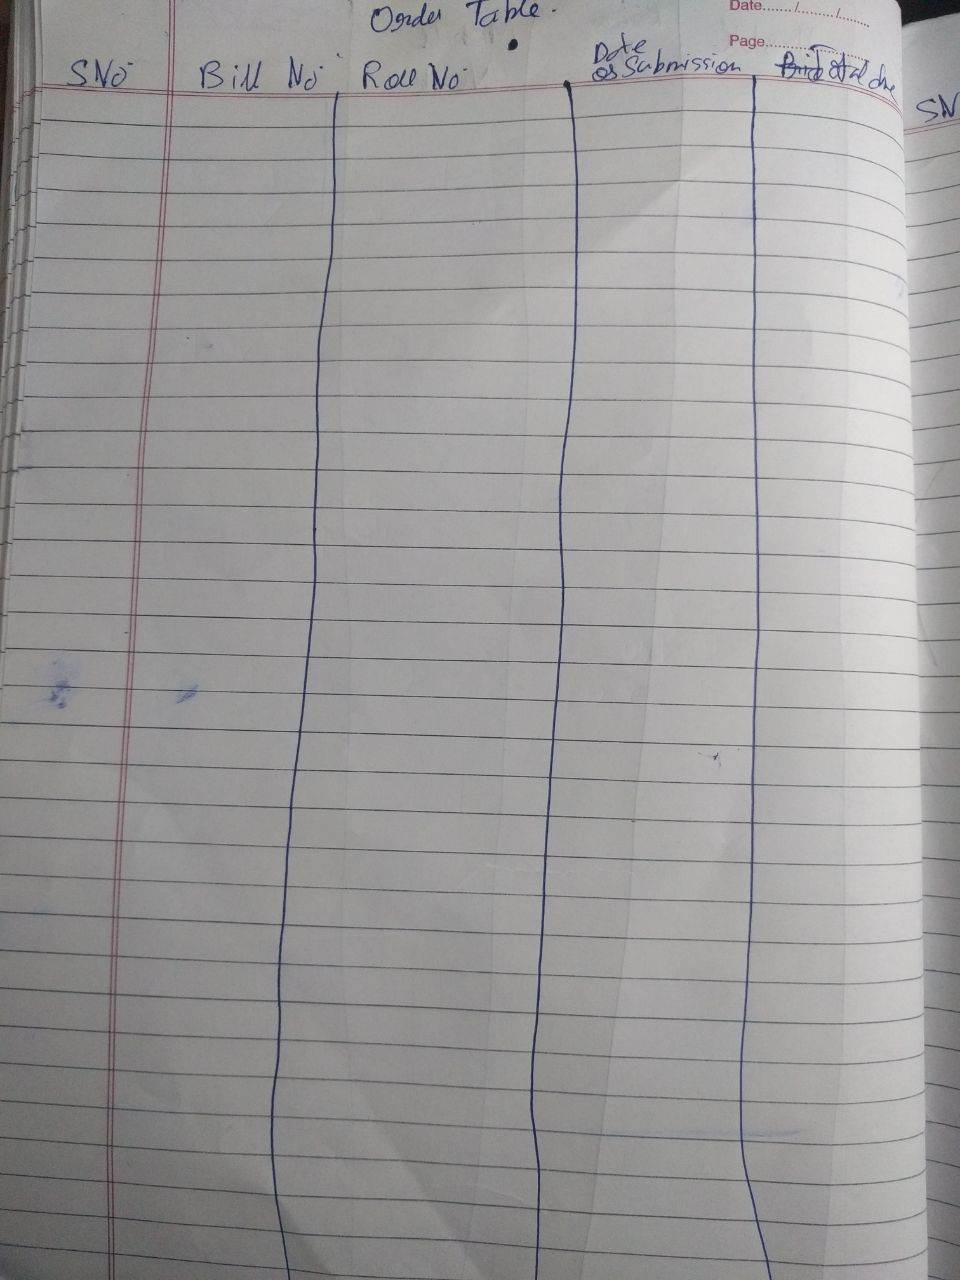 Order Table.
Date......./........./........
Page
SNo
Bill No
Roll No
Date
of Submission
Total due
SN